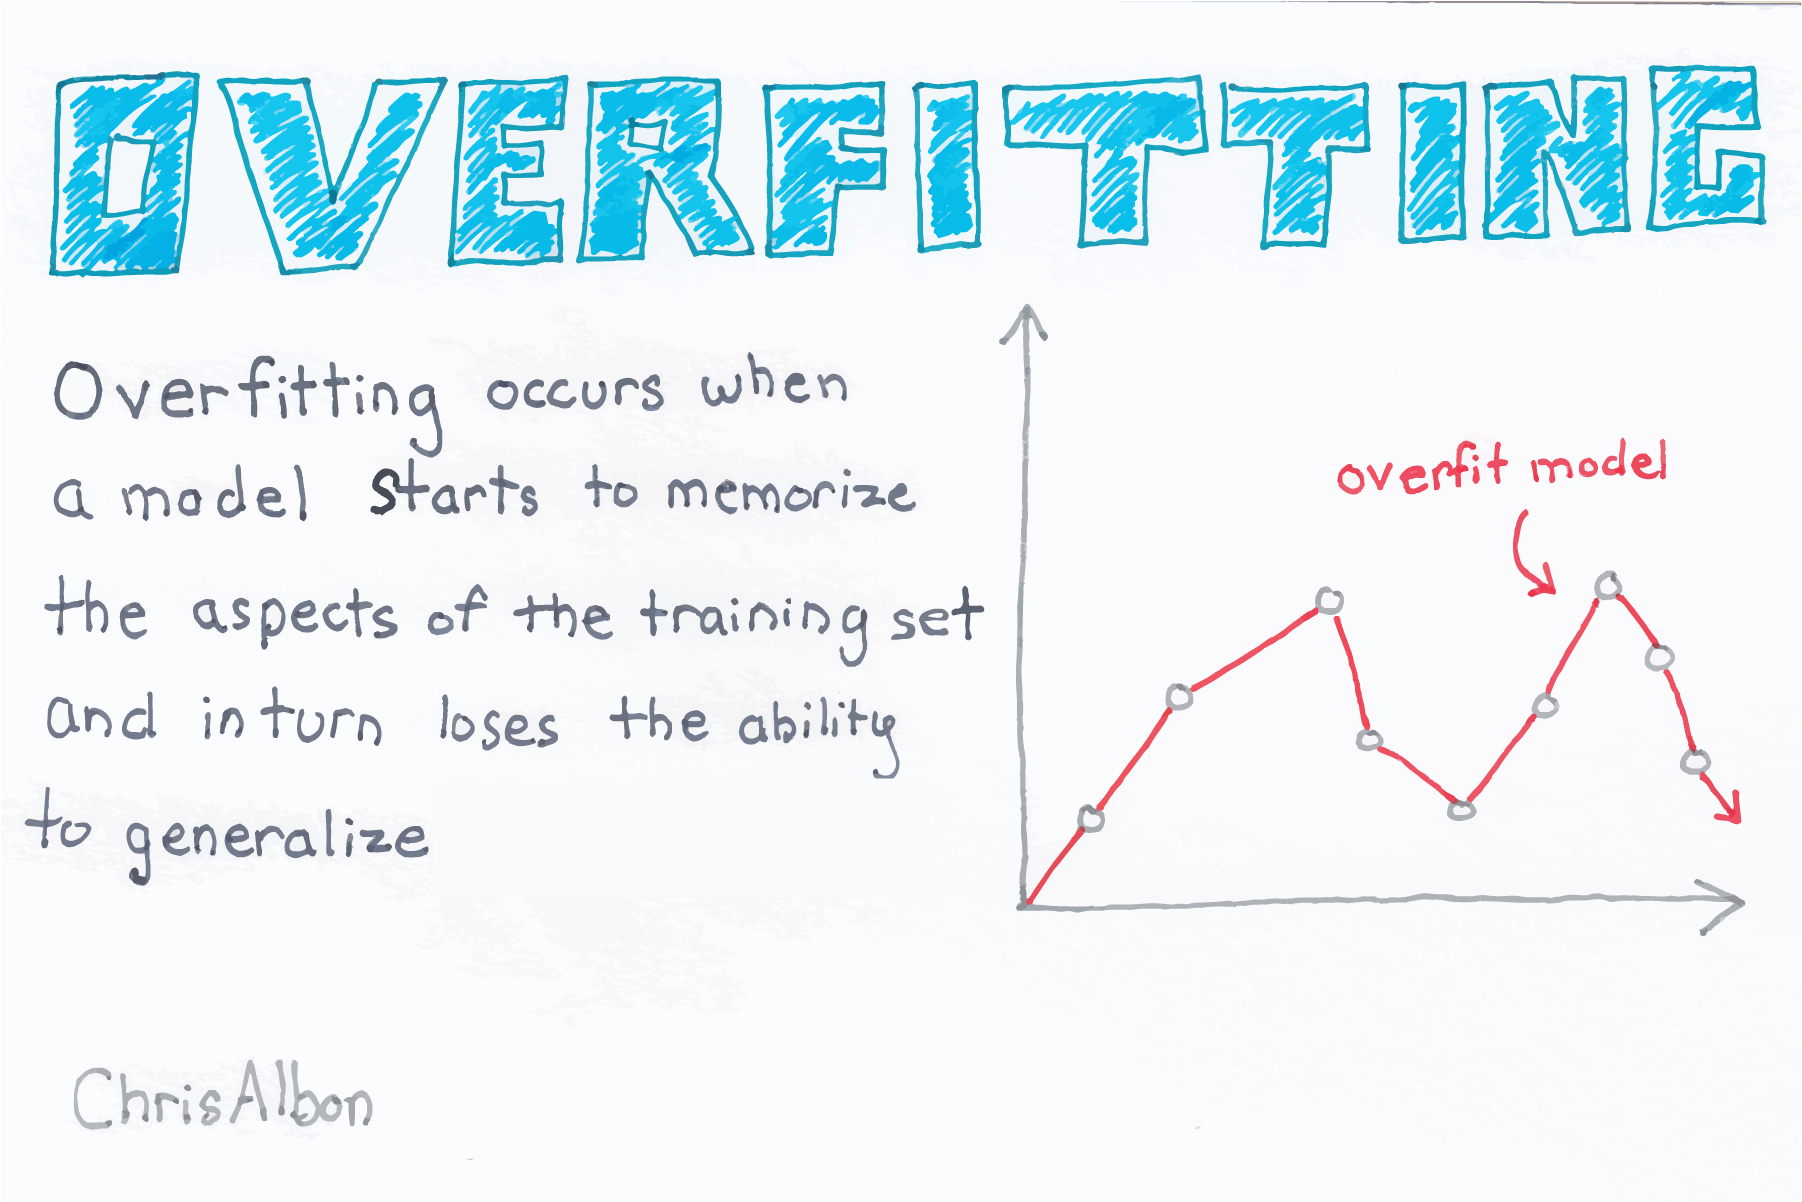 OVERFITTING
Overfitting occurs when
a model starts to memorize
the aspects of the training set
and in turn loses the ability
to generalize
overfit model
ChrisAlbon